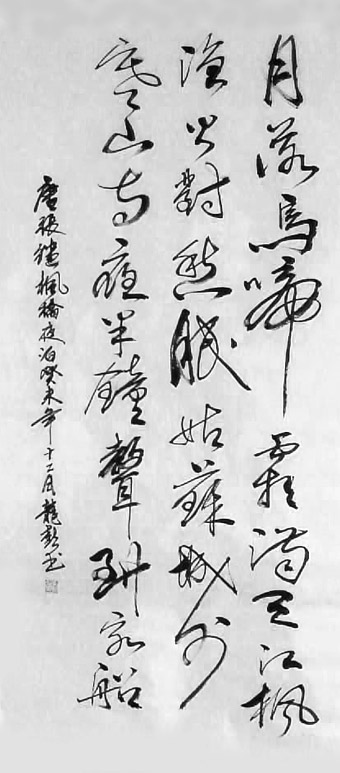 月落烏啼霜滿天江楓
漁火對愁眠姑蘇城外
寒山寺夜半鐘聲到客船
唐張繼楓橋夜泊癸未年十二月龍書